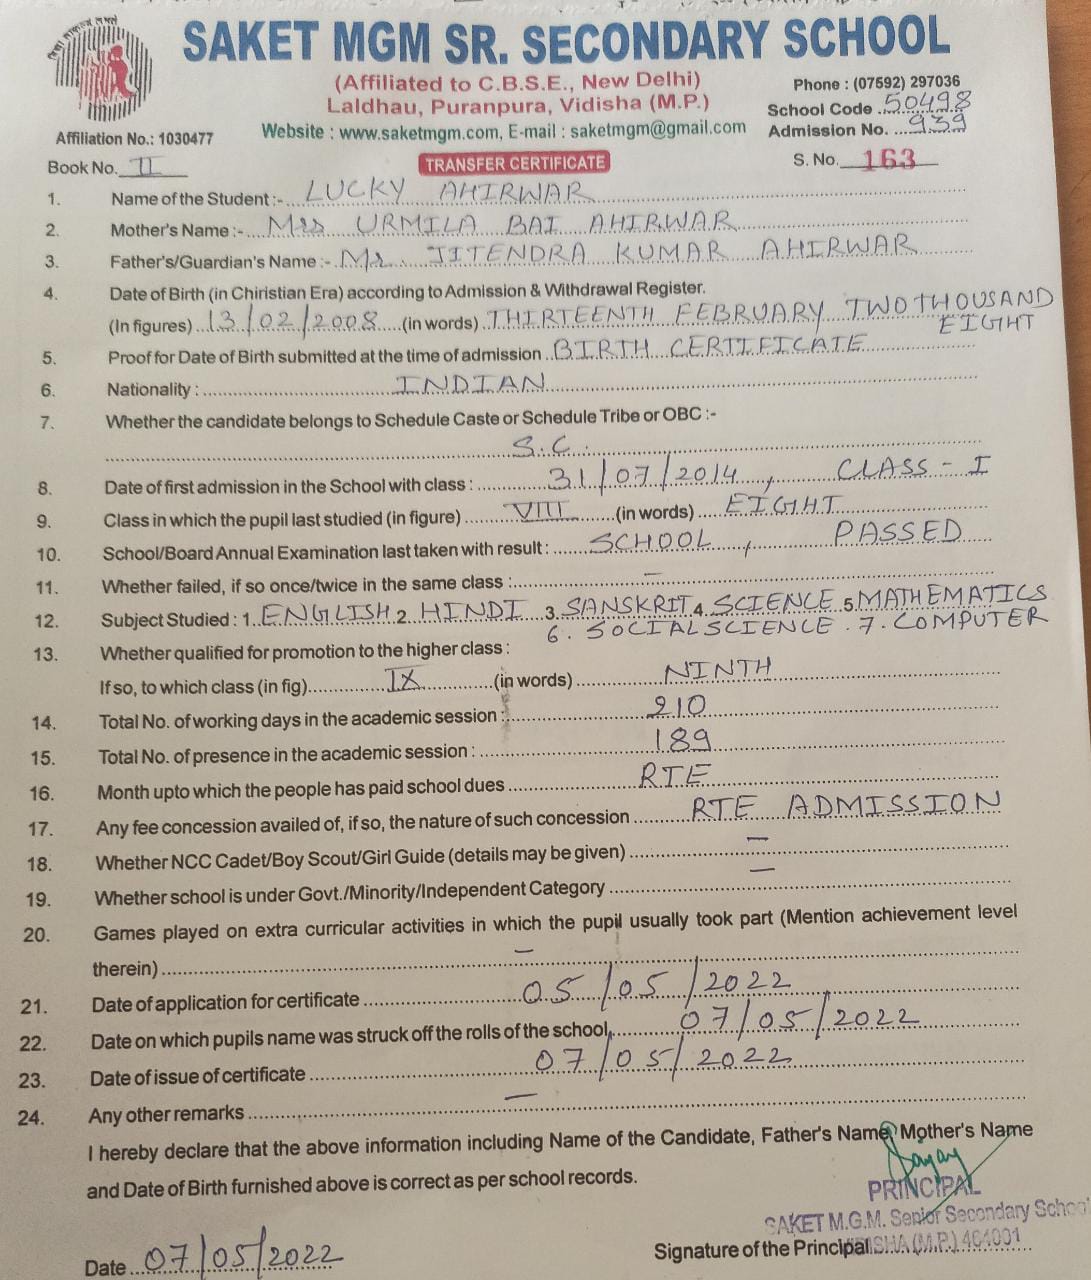 SAKET MGM SR. SECONDARY SCHOOL
(Affiliated to C.B.S.E., New Delhi)
Laldhau, Puranpura, Vidisha (M.P.)
Phone : (07592) 297036
School Code .50498
Affiliation No.: 1030477
Website : www.saketmgm.com, E-mail : saketmgm@gmail.com
Admission No. ....939
Book No. II
TRANSFER CERTIFICATE
S. No. 163
1. Name of the Student :- LUCKY AHIRWAR
2. Mother's Name :- Mrs URMILA BAI AHIRWAR
3. Father's/Guardian's Name :- Mr. JITENDRA KUMAR AHIRWAR
4. Date of Birth (in Chiristian Era) according to Admission & Withdrawal Register.
(In figures) 13/02/2008 (in words) THIRTEENTH FEBRUARY TWO THOUSAND
EIGHT
5. Proof for Date of Birth submitted at the time of admission BIRTH CERTIFICATE
6. Nationality : INDIAN
7. Whether the candidate belongs to Schedule Caste or Schedule Tribe or OBC :-
S.C.
8. Date of first admission in the School with class : 31/07/2014, CLASS - I
9. Class in which the pupil last studied (in figure) VIII (in words) EIGHT
10. School/Board Annual Examination last taken with result : SCHOOL , PASSED
11. Whether failed, if so once/twice in the same class : —
12. Subject Studied : 1. ENGLISH 2. HINDI 3. SANSKRIT 4. SCIENCE 5. MATHEMATICS
6. SOCIAL SCIENCE . 7. COMPUTER
13. Whether qualified for promotion to the higher class :
If so, to which class (in fig) IX (in words) NINTH
14. Total No. of working days in the academic session : 210
15. Total No. of presence in the academic session : 189
16. Month upto which the people has paid school dues RTE
17. Any fee concession availed of, if so, the nature of such concession RTE ADMISSION
18. Whether NCC Cadet/Boy Scout/Girl Guide (details may be given) —
19. Whether school is under Govt./Minority/Independent Category —
20. Games played on extra curricular activities in which the pupil usually took part (Mention achievement level
therein) —
21. Date of application for certificate 05/05/2022
22. Date on which pupils name was struck off the rolls of the school, 07/05/2022
23. Date of issue of certificate 07/05/2022
24. Any other remarks —
I hereby declare that the above information including Name of the Candidate, Father's Name, Mother's Name
and Date of Birth furnished above is correct as per school records.
PRINCIPAL
SAKET M.G.M. Senior Secondary School
Date 07/05/2022
Signature of the Principal (M.P.) 464001